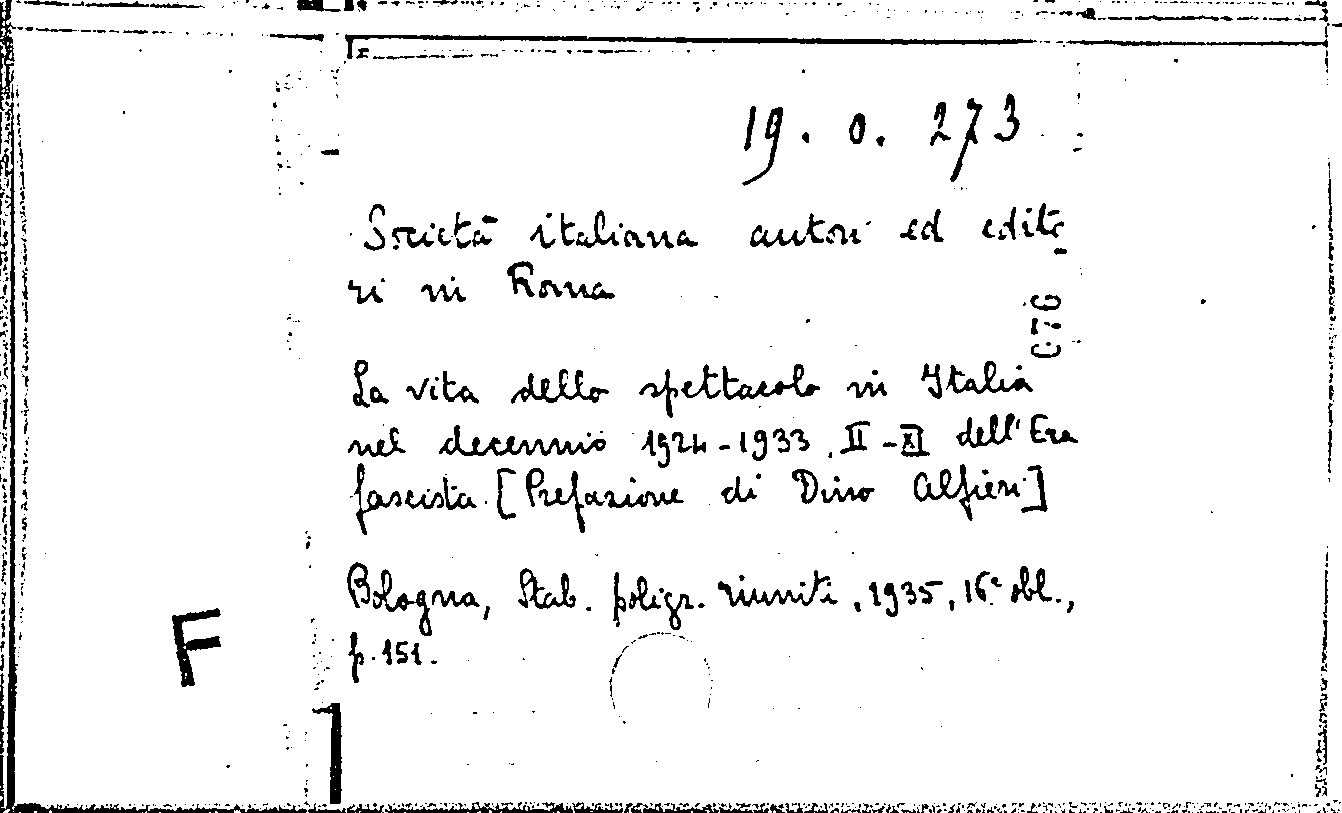 19. 0. 273
Società italiana autori ed edito-
ri in Roma
076
La vita dello spettacolo in Italia
nel decennio 1924-1933. II-XI dell'Era
fascista [Prefazione di Dino Alfieri]
Bologna, Stab. poligr. riuniti, 1935, 16° obl.,
p. 151.
F